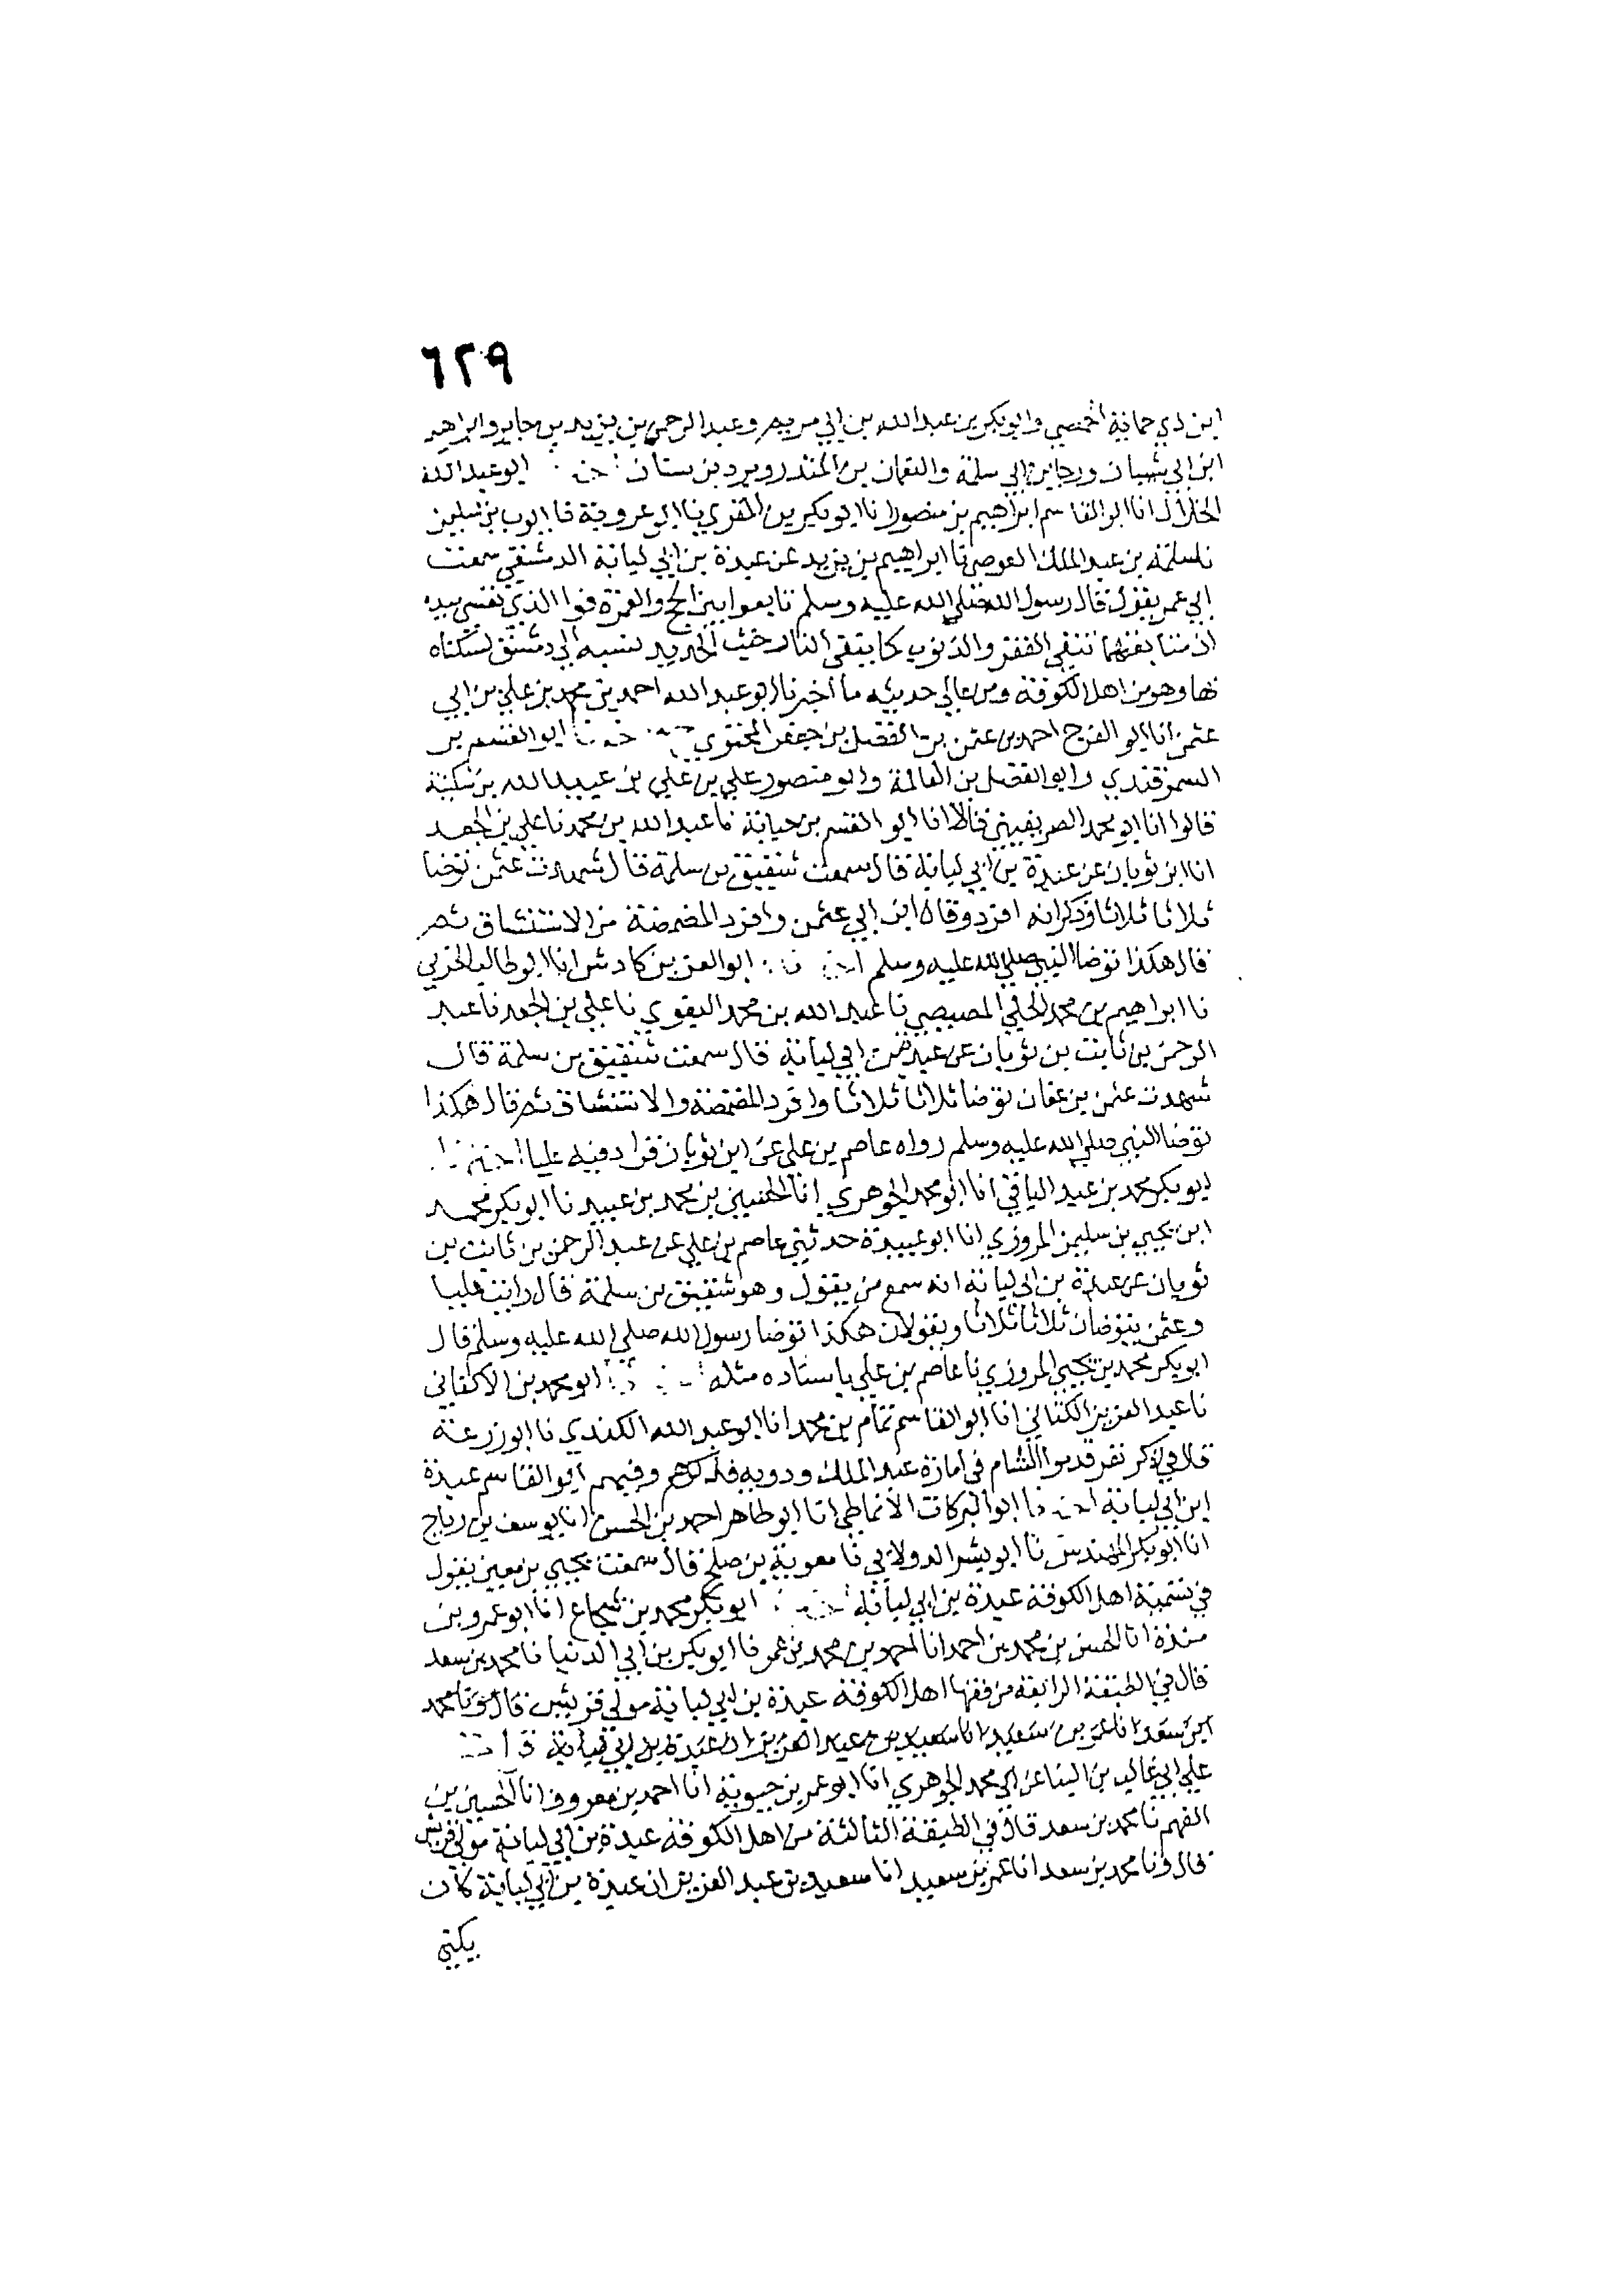 ٦٢٩
ابن ذي حمانة الحمصي وابو بكر بن عبدالله بن ابي مريم وعبد الرحمن بن يزيد بن جابر وابراهيم
ابن ابي شيبان ورجا بن ابي سلمة والنعمان بن المنذر وبرد بن سنان ابو عبدالله
الخلال انا ابو القاسم ابراهيم بن منصور انا ابو بكر بن المقري نا ابو عروبة نا ايوب بن سليمن
نا سلمة بن عبد الملك العوصي نا ابراهيم بن يزيد عن عبدة بن ابي لبابة الدمشقي سمعت
ابي عمر يقول قال رسول الله صلي الله عليه وسلم تابعوا بين الحج والعمرة فوا الذي نفسي بيده
ان متابعتهما تنفي الفقر والذنوب كما ينقي النار خبث الحديد نسبه الي دمشق لسكناه
بها وهو من اهل الكوفة ومن عالي حديثه ما اخبرنا ابو عبد الله احمد بن محمد بن علي بن ابي
عثمن انا ابو الفرج احمد بن عثمن بن الفضل بن جعفر ابو القسم بن
السمرقندي وابو الفضل بن العالمة وابو منصور علي بن علي بن عبيد الله بن سكينة
قالوا انا ابو محمد الصريفيني قالا انا ابو القسم بن حبابة نا عبد الله بن محمد نا علي بن الجعد
انا ابن ثوبان عن عبدة بن ابي لبابة قال سمعت شقيق بن سلمة قال شهدت عثمن توضا
ثلاثا ثلاثا وذكر انه افرد وقال ابن ابي عثمن وافرد المضمضة من الاستنشاق ثم
قال هكذا توضا النبي صلي الله عليه وسلم ابو العز بن كادش انا ابو طالب الحربي
نا ابراهيم بن محمد الجلي المصيصي نا عبد الله بن محمد البغوي نا علي بن الجعد نا عبد
الرحمن بن ثابت بن ثوبان عن عبدة بن ابي لبابة قال سمعت شقيق بن سلمة قال
شهدت عثمن بن عفان توضا ثلاثا ثلاثا وافرد المضمضة والاستنشاق ثم قال هكذا
توضا النبي صلي الله عليه وسلم رواه عاصم بن علي عن ابن ثوبان فزاد فيه عليا
ابو بكر محمد بن عبد الباقي انا ابو محمد الجوهري انا الحسين بن محمد بن عبيد نا ابو بكر محمد
ابن يحيي بن سليمن المروزي انا ابو عبيدة حدثني عاصم بن علي عن عبد الرحمن بن ثابت بن
ثوبان عن عبدة بن ابي لبابة انه سمع من يقول وهو شقيق بن سلمة قال رايت عليا
وعثمن يتوضان ثلاثا ثلاثا ويقولان هكذا توضا رسول الله صلي الله عليه وسلم قال
ابو بكر محمد بن يحيي المروزي نا عاصم بن علي باسناده مثله ابو محمد بن الاكفاني
نا عبد العزيز الكتاني انا ابو القاسم تمام بن محمد انا ابو عبد الله الكندي نا ابو زرعة
قال في ذكر نفر قدموا الشام في امارة عبد الملك ودويه فذكرهم وفيهم ابو القاسم عبدة
ابن ابي لبابة ابو البركات الانماطي انا ابو طاهر احمد بن الحسن انا يوسف بن رباح
انا ابو بكر المهندس نا ابو بشر الدولابي نا معوية بن صلح قال سمعت يحيي بن معين يقول
في تسمية اهل الكوفة عبدة بن ابي لبابة ابو بكر محمد بن شجاع انا ابو عمرو بن
مندة انا الحسن بن محمد بن احمد انا احمد بن محمد بن عمر نا ابو بكر بن ابي الدنيا نا محمد بن سعد
قال في الطبقة الرابعة من فقها اهل الكوفة عبدة بن ابي لبابة مولي قريش قال ونا محمد
ابن سعد انا عمر بن سعيد انا سعيد بن عبد العزيز ان عبدة بن ابي لبابة
علي ابي غالب بن البنا عن ابي محمد الجوهري انا ابو عمر بن حيوية انا احمد بن معروف انا الحسين بن
الفهم نا محمد بن سعد قال في الطبقة الثالثة من اهل الكوفة عبدة بن ابي لبابة مولي قريش
قال ونا محمد بن سعد انا عمر بن سعيد انا سعيد بن عبد العزيز ان عبدة بن ابي لبابة كان
يكني